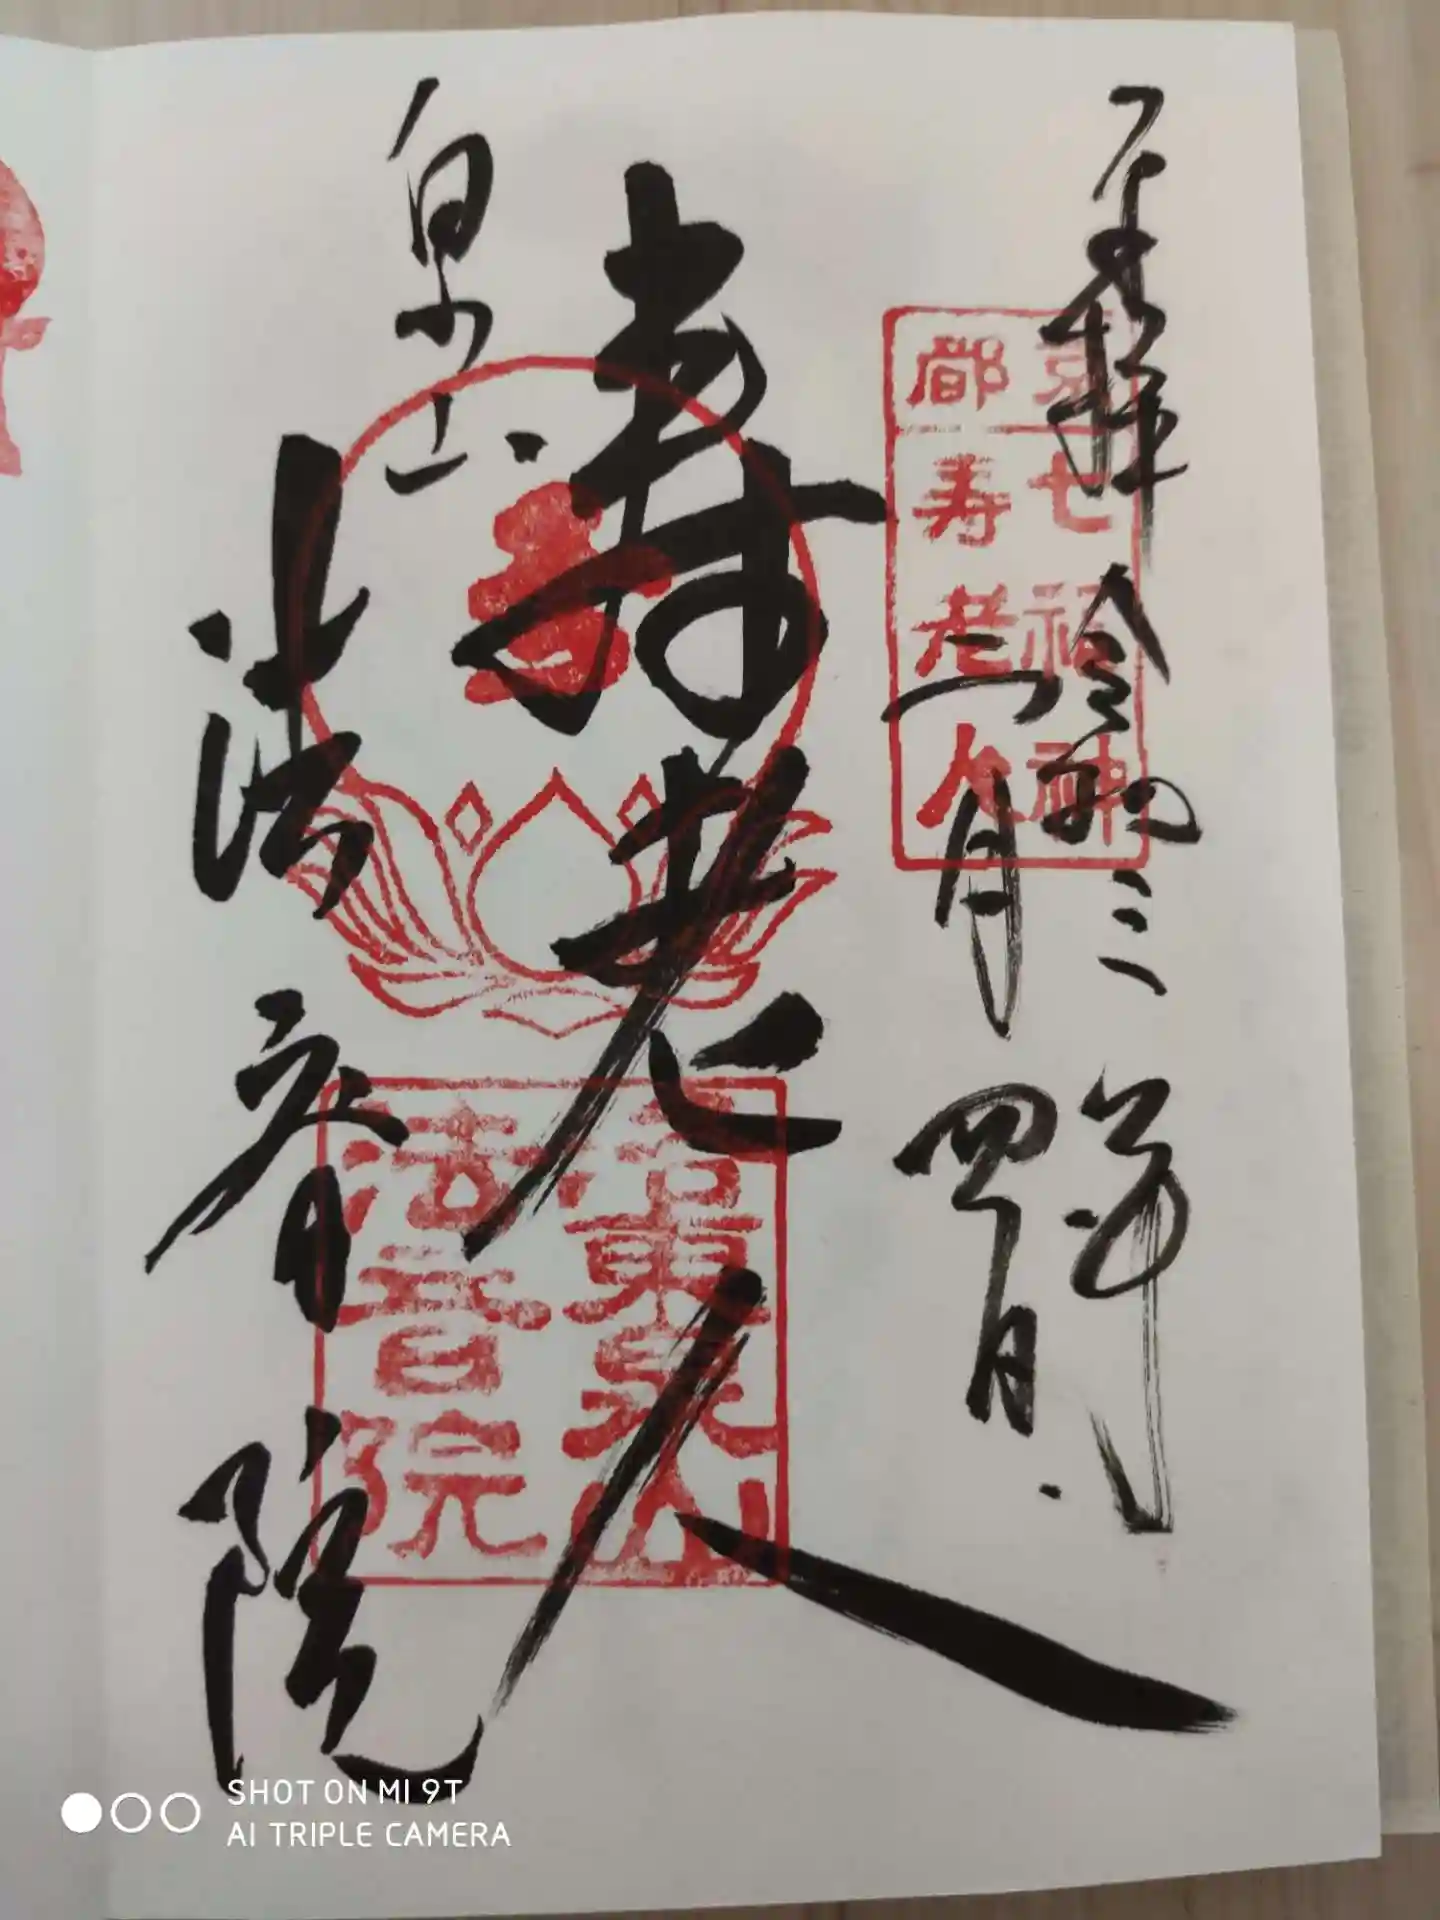 奉拝 令和三年
二月四日
京都七福神
寿老人
寿老人
泉山
法音院
東泉山
法音院
SHOT ON MI 9T
AI TRIPLE CAMERA